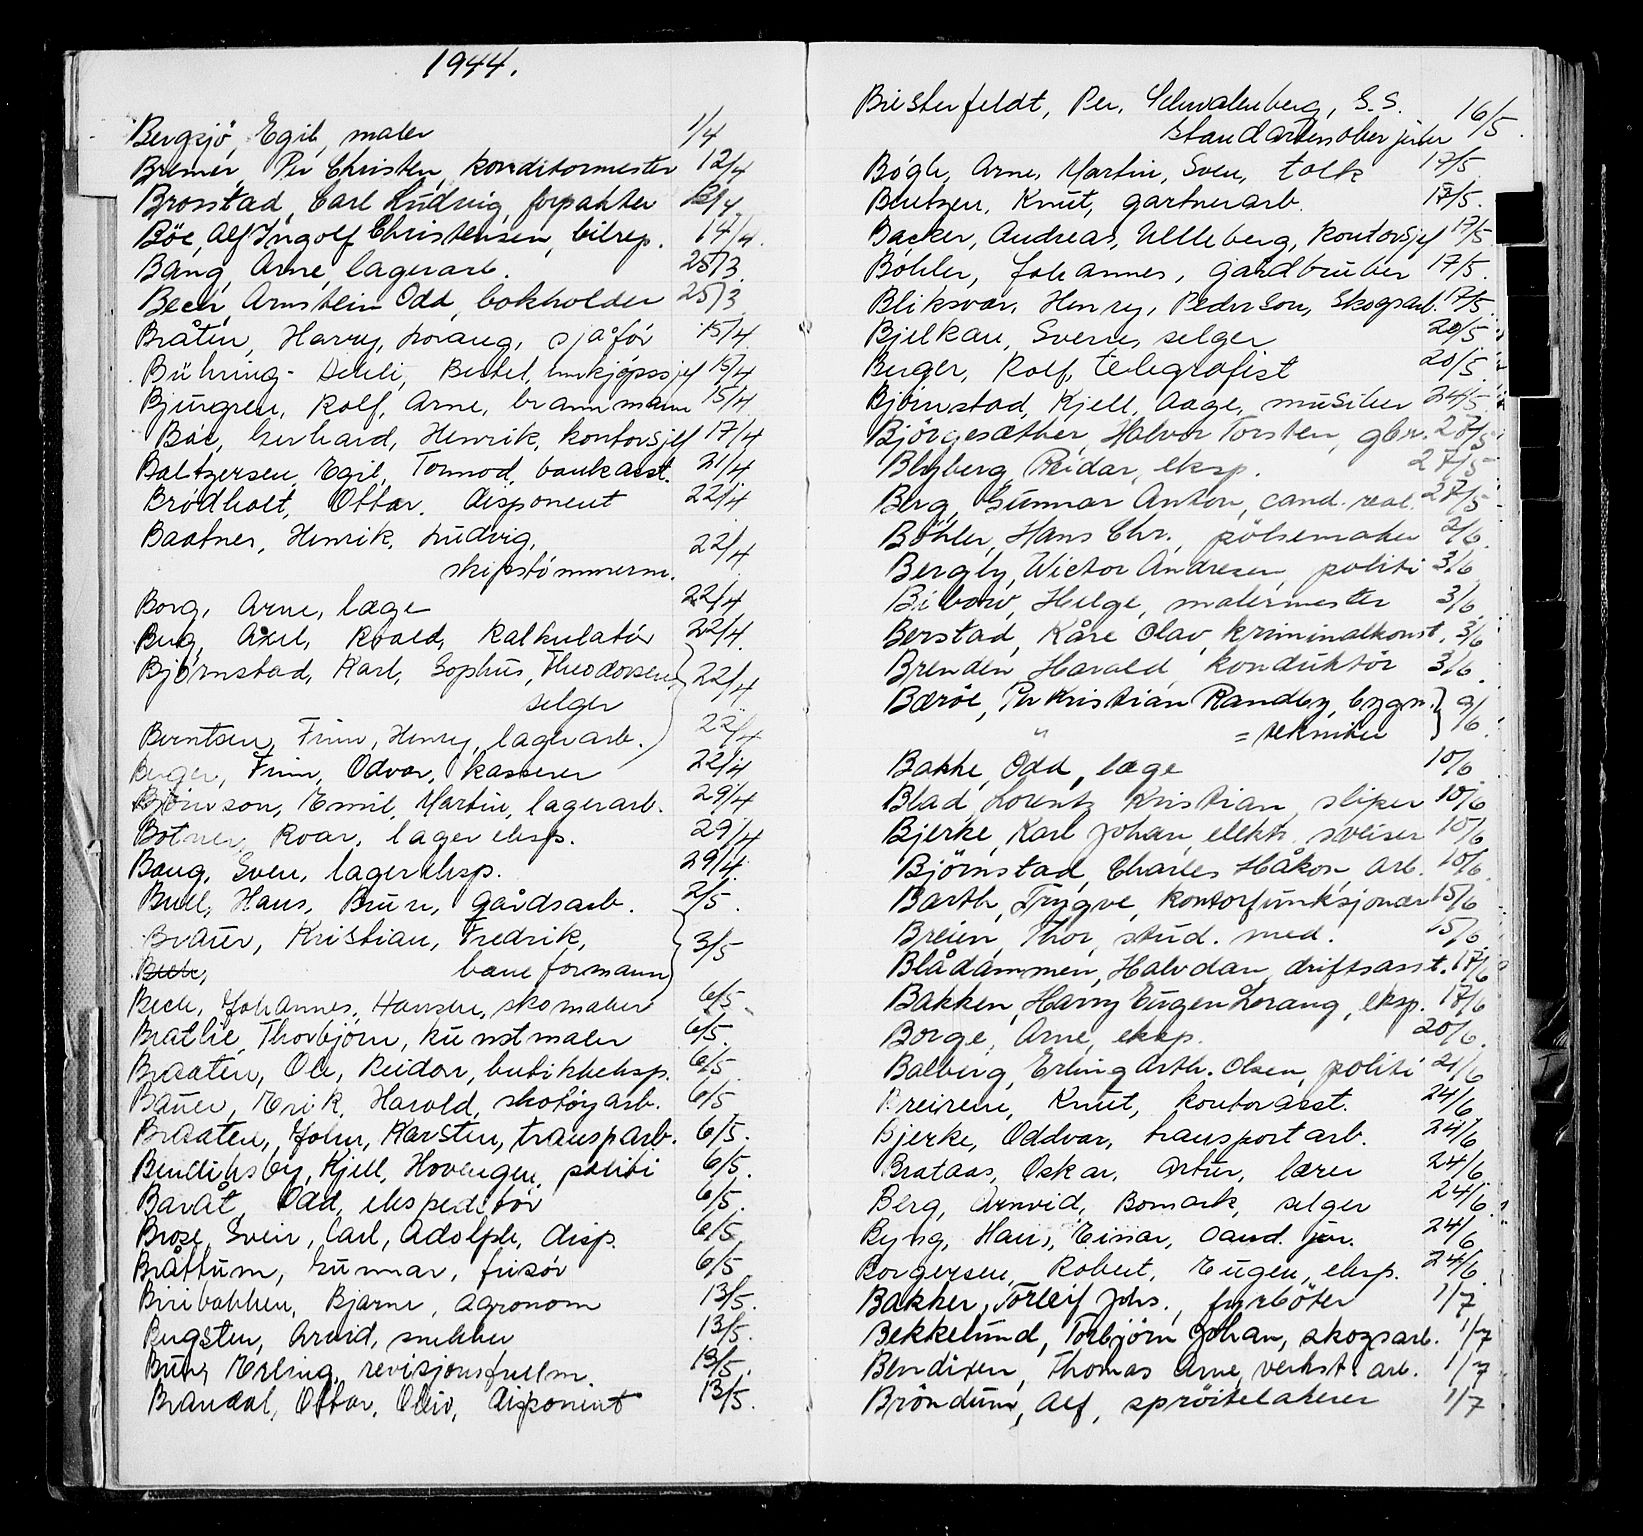 1944.
Bergsjö, Egil, maler 1/4
Bremer, Per Christen, konditormester 12/4
Brosstad, Carl Ludvig, forpakter 12/4
Böe, Alf Ingolf Christensen, bilrep. 14/4.
Bang, Arne, lagerarb. 25/3
Bech, Arnstein Odd, bokholder 25/3
Bråten, Harry, Lorang, sjåför 15/4
Bühring-Dehli, Bertel, innkjöpssjef 15/4
Bjurgren, Rolf, Arne, brannmann 15/4
Böe, Gerhard, Henrik, kontorsjef 17/4
Baltzersen, Egil, Tormod, bankasst. 21/4
Brödholt, Ottar, disponent 22/4
Baatnes, Henrik, Ludvig, 22/4
skipstömmerm.
Borg, Arne, læge 22/4
Berg, Axel, Roald, kalkulatör 22/4.
Björnstad, Karl, Sophus, Theodorsen, 22/4
selger
Berntsen, Finn, Henry, lagerarb. 22/4
Berger, Finn, Odvar, kasserer 22/4
Björnson, Emil, Martin, lagerarb. 29/4
Botner, Roar, lagereksp. 29/4
Baug, Sven, lagereksp. 29/4.
Bull, Hans, Bruun, gårdsarb. 2/5.
Brauer, Kristian, Fredrik, 3/5
Bech, baneformann
Bech, Johannes, Hansen, skomaker 6/5.
Bratlie, Thorbjörn, kunstmaler 6/5.
Braaten, Ole, Reidar, butikkeksp. 6/5.
Bauer, Erik, Harald, skotöyarb. 6/5
Braaten, John, Karsten, transp.arb. 6/5.
Bendiksby, Kjell, Hovengen, politi 6/5.
Baråt, Odd, ekspeditör 6/5.
Brose, Svein, Carl, Adolph, disp. 6/5.
Bråttum, Gunnar, frisör 6/5
Biribakken, Bjarne, agronom 13/5.
Bergsten, Arvid, snekker 13/5.
Bury, Erling, revisjonsfullm. 13/5.
Brandal, Ottar, Oliv, disponent 13/5.
Biesterfeldt, Per, Schwalenberg, S.S. 16/5.
Standartenoberjunker
Bögh, Arne, Martin, Sven, tolk 17/5.
Berntzen, Knut, gartnerarb. 17/5.
Backer, Andreas, Ulleberg, kontorsjef 17/5
Böhler, Johannes, gardbruker 17/5.
Bliksvær, Henry, Pederson, skogsarb. 17/5.
Bjelkan, Sverre, selger 20/5
Berger, Rolf, telegrafist 20/5.
Björnstad, Kjell, Aage, musiker 24/5.
Björgesæther, Halvor Torsten, gbr. 27/5
Blyberg, Reidar, eksp. 27/5
Berg, Gunnar Anton, cand. real. 27/5
Böhler, Hans Chr., pölsemaker 2/6.
Bergly, Wictor Andresen, politi 3/6
Bibow, Helge, malermester 3/6
Berstad, Kåre Olav, kriminalkonst. 3/6
Brenden, Harald, konduktör 3/6.
Bæröe, Per Kristian Randby, bygn. 9/6.
" = tekniker
Bakke, Odd, læge 10/6
Blad, Lorentz Kristian, sliper 10/6
Bjerke, Karl Johan, elektr. sveiser 10/6
Björnstad, Charles Håkon, arb. 10/6.
Barth, Trygve, kontorfunksjonær 15/6
Breien, Thor, stud. med. 15/6.
Blådammen, Halvdan, driftsasst. 17/6
Bakken, Harry Eugen Lorang, eksp. 17/6
Borge, Arne, eksp. 20/6.
Balberg, Erling Arth. Olsen, politi 21/6
Breirem, Knut, kontorasst. 24/6
Bjerke, Oddvar, transportarb. 24/6
Brataas, Oskar, Artur, lærer 24/6
Berg, Arnvid, Bomark, selger 24/6.
Byng, Hans, Einar, cand. jur. 24/6
Borgersen, Robert, Eugen, eksp. 24/6
Bakker, Torleif Johs., fyrböter 1/7
Bekkelund, Torbjörn Johan, skogsarb. 1/7
Bendixen, Thomas Arne, verkst. arb. 1/7
Bröndum, Alf, spröitelakerer 1/7